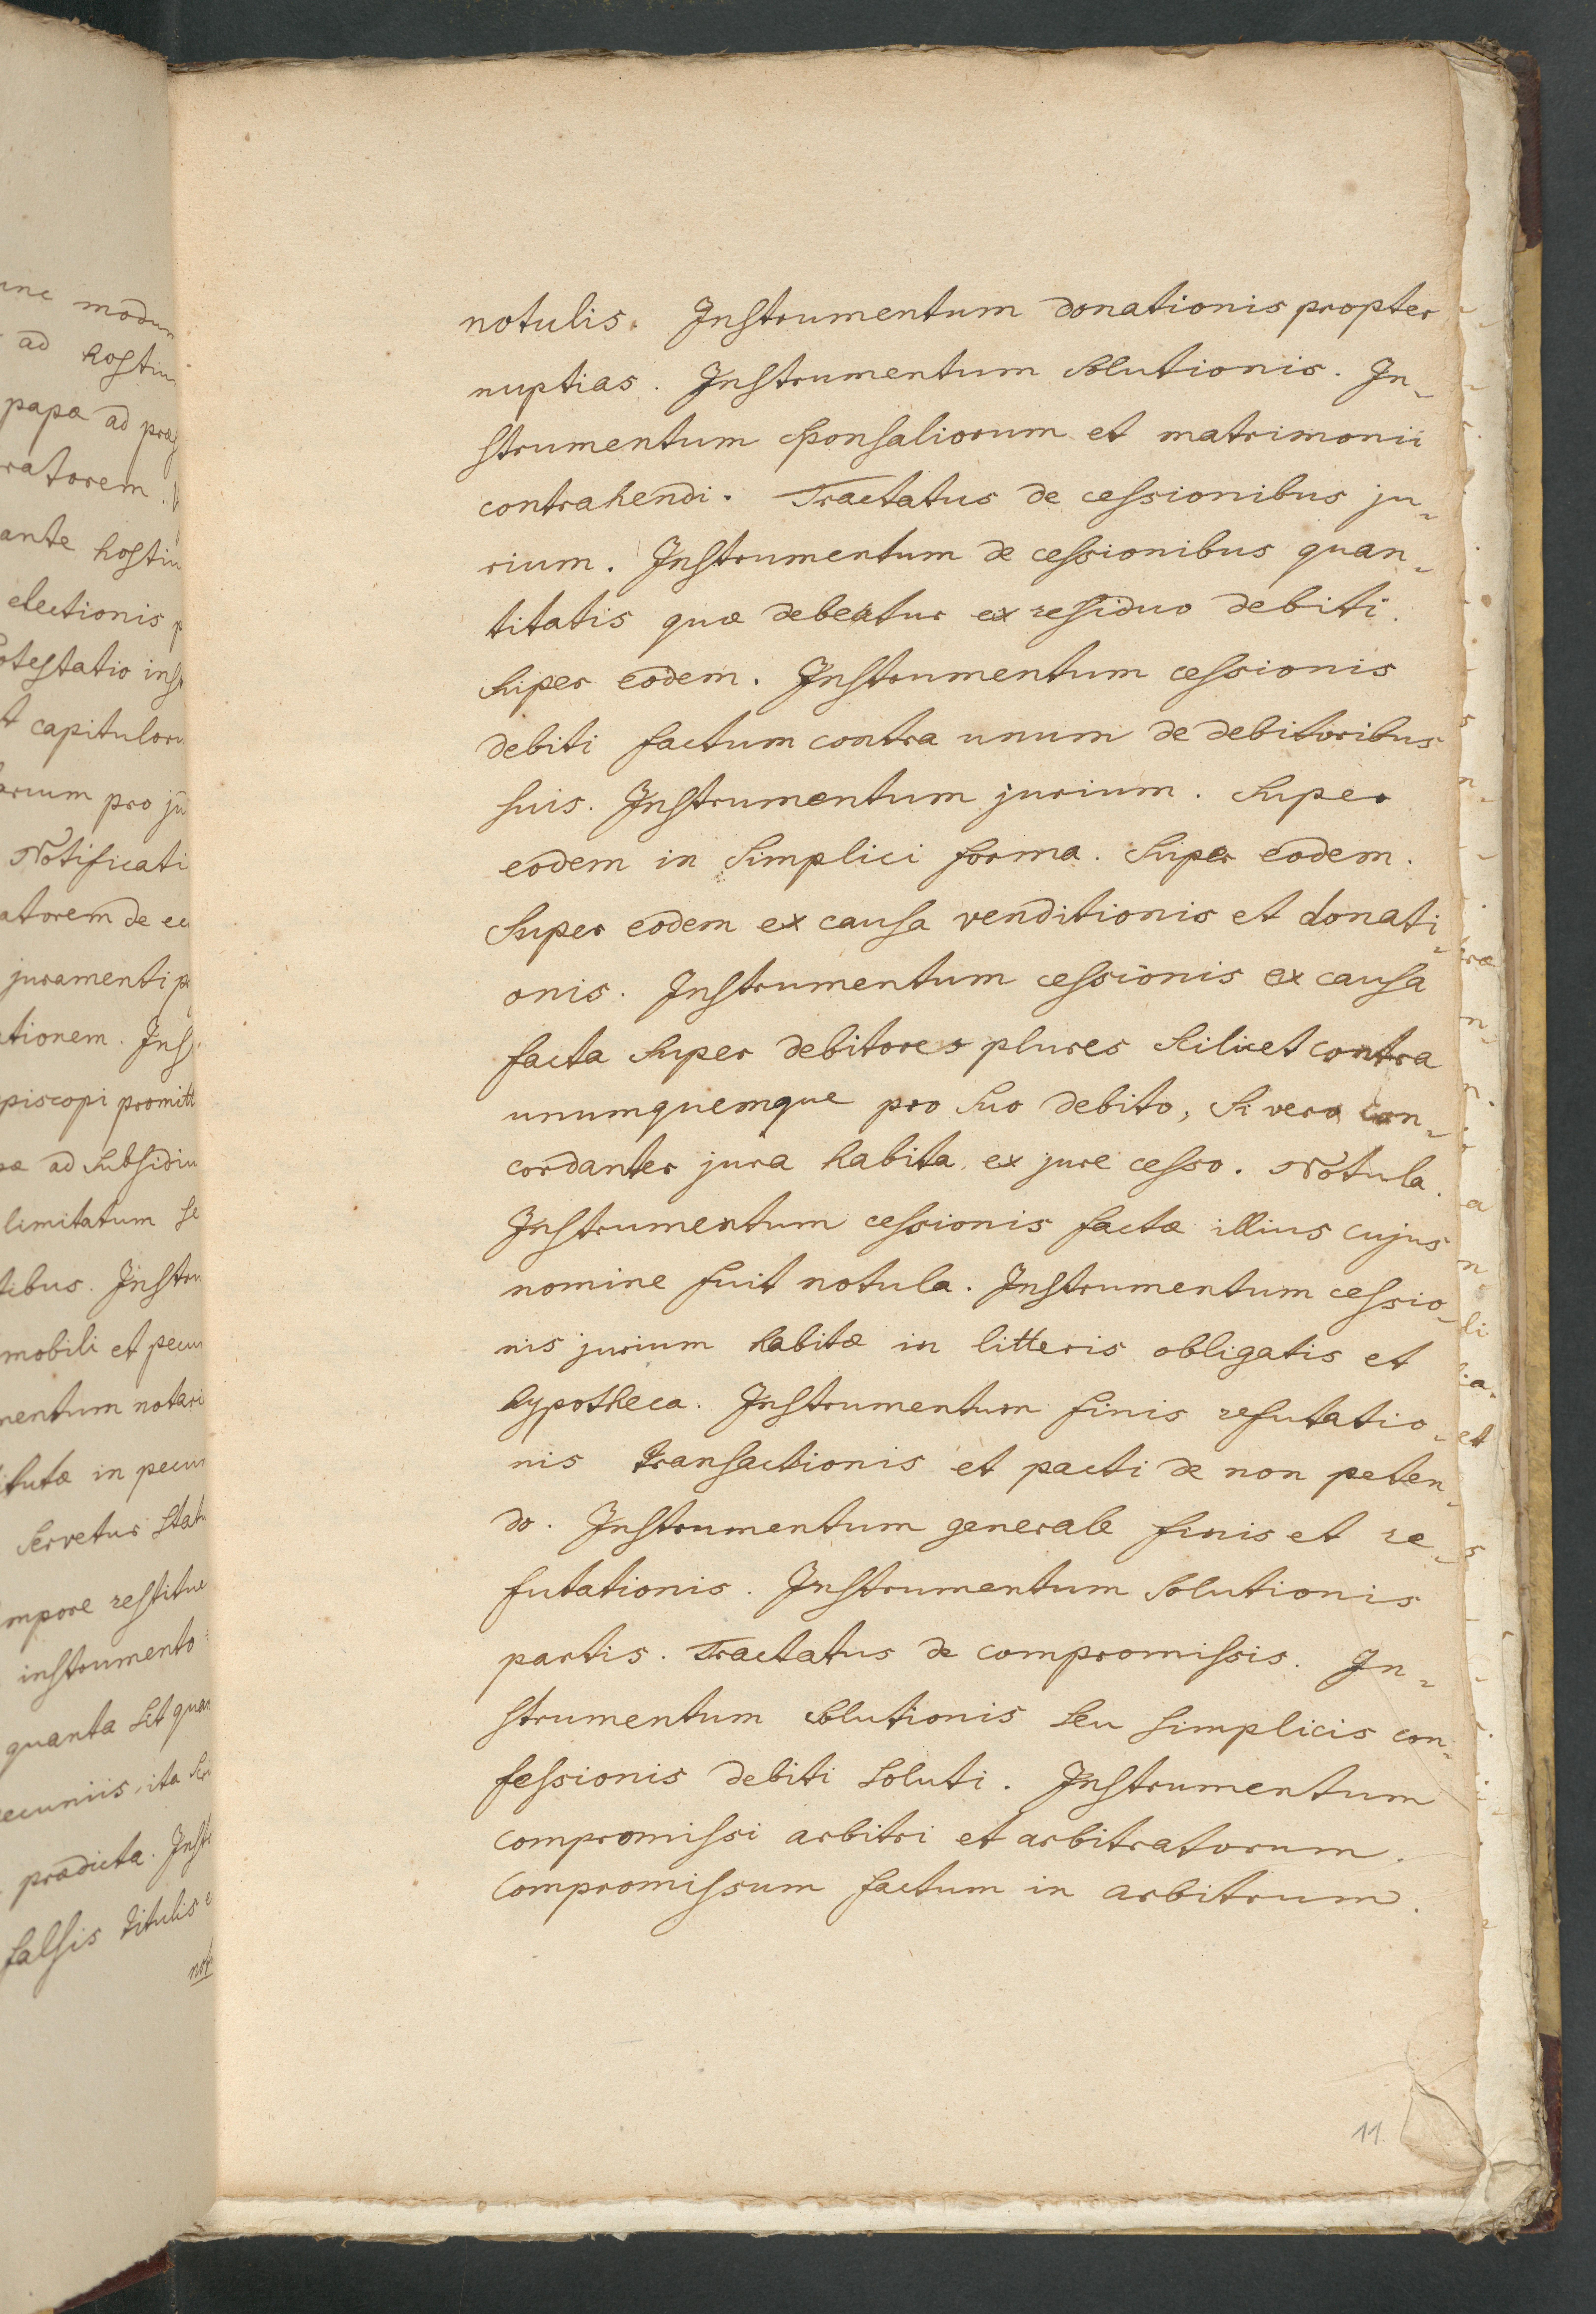 notulis. Instrumentum donationis propter
nuptias. Instrumentum solutionis. In-
strumentum sponsaliorum et matrimonii
contrahendi. Tractatus de cessionibus ju-
rium. Instrumentum de cessionibus quan-
titatis quæ debeatur ex residuo debiti.
Super eodem. Instrumentum cessionis
debiti factum contra unum de debitoribus
suis. Instrumentum jurium. Super
eodem in simplici forma. Super eodem.
Super eodem ex causa venditionis et donati-
onis. Instrumentum cessionis ex causa
facta super debitores plures scilicet contra
unumquemque pro suo debito, si vero con-
cordanter jura habita ex jure cesso. Notula.
Instrumentum cessionis factæ illius cujus
nomine fuit notula. Instrumentum cessio-
nis jurium habitæ in litteris obligatis et
hypotheca. Instrumentum finis refutatio-
nis transactionis et pacti de non peten-
do. Instrumentum generale finis et re-
futationis. Instrumentum solutionis
partis. Tractatus de compromissis. In-
strumentum solutionis seu simplicis con-
fessionis debiti soluti. Instrumentum
compromissi arbitri et arbitratorum.
Compromissum factum in arbitrum.
11.